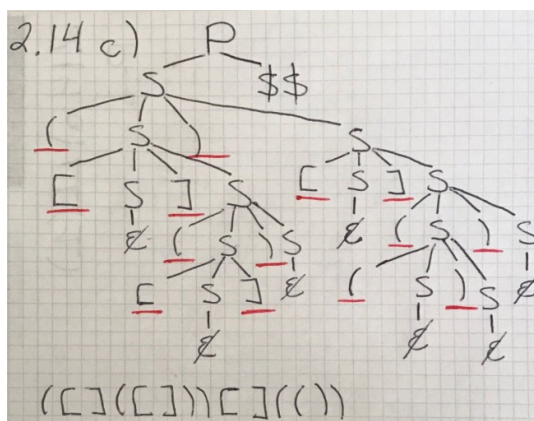 2.14 c) P
S $$
( S ) S
[ S ] S [ S ] S
ε ( S ) S ε ( S ) S
[ S ] ε ( S ) S ε
ε ε ε
([]([]))[](())